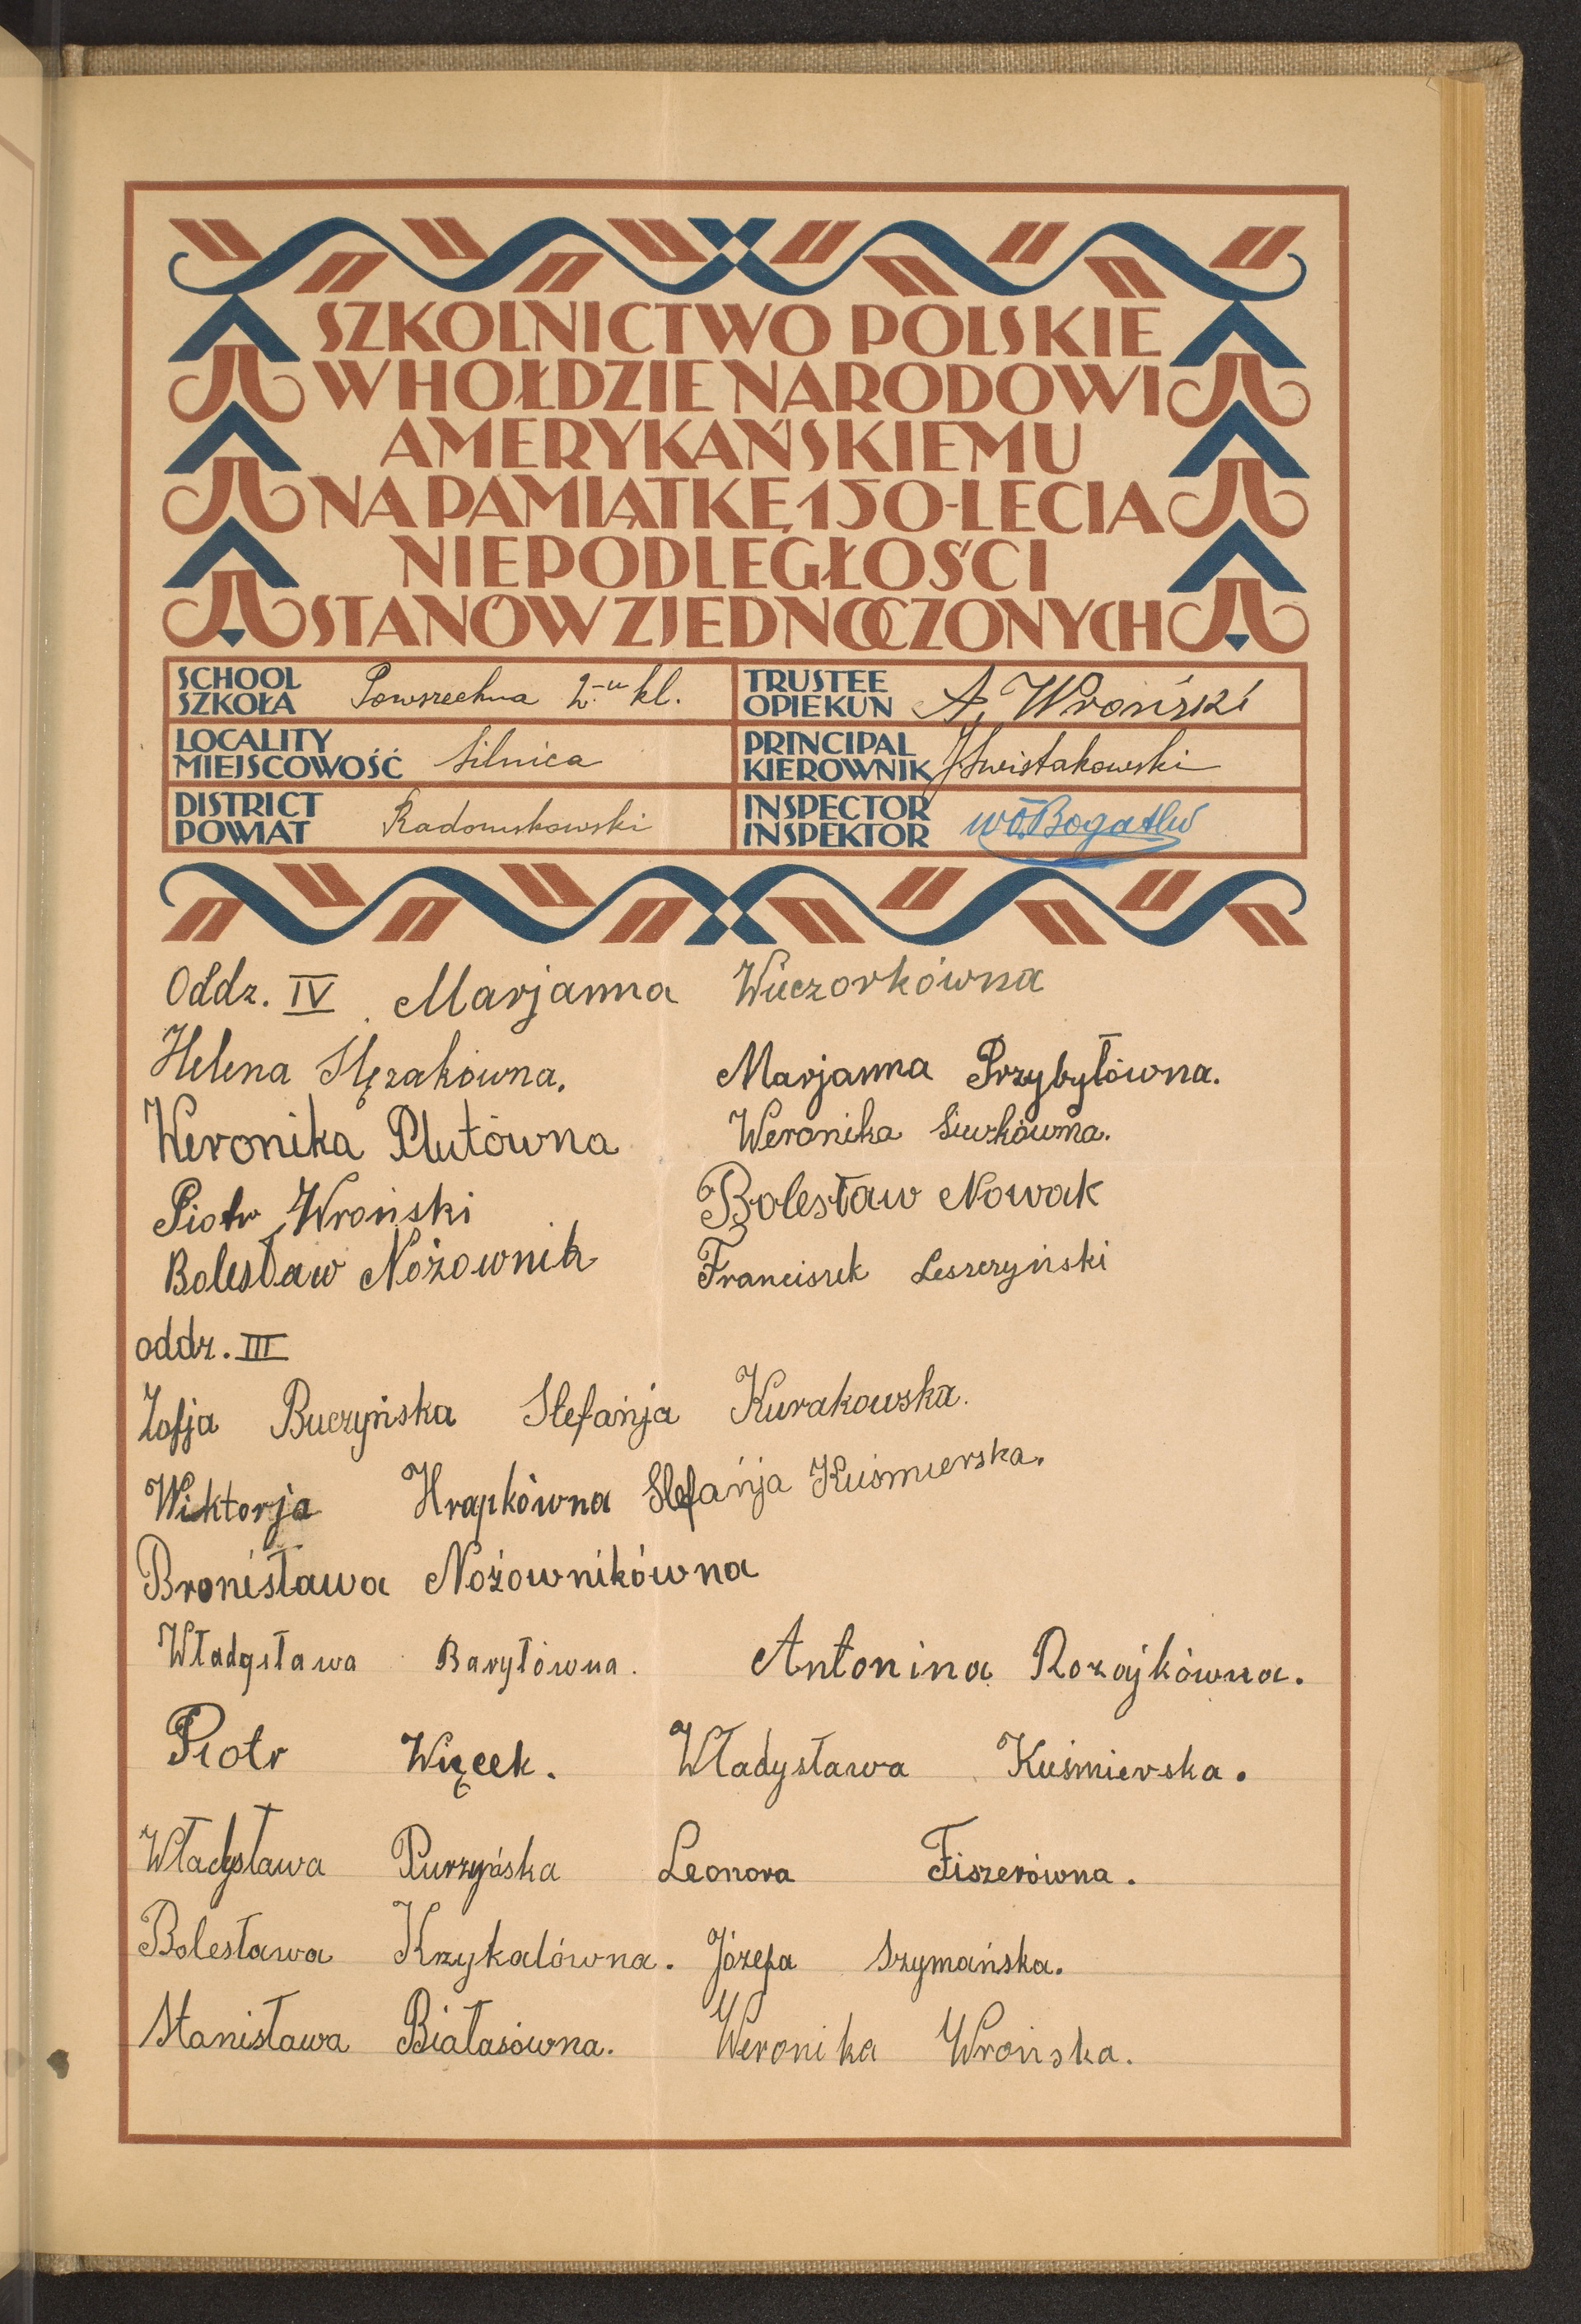 SZKOLNICTWO POLSKIE
W HOŁDZIE NARODOWI
AMERYKAŃSKIEMU
NA PAMIĄTKĘ 150-LECIA
NIEPODLEGŁOŚCI
STANÓW ZJEDNOCZONYCH
SCHOOL
SZKOŁA Powszechna 2-u kl.
TRUSTEE
OPIEKUN A. Wroński
LOCALITY
MIEJSCOWOŚĆ Silnica
PRINCIPAL
KIEROWNIK J. Świstakowski
DISTRICT
POWIAT Radomskowski
INSPECTOR
INSPEKTOR
Oddz. IV. Marjanna Wieczorkówna
Helena Ślęzakówna. Marjanna Przybyłówna.
Weronika Plutówna Weronika Siwkówna.
Piotr Wroński Bolesław Nowak
Bolesław Nożownik Franciszek Leszczyński
oddz. III
Zofja Buczyńska Stefańja Kurakowska.
Wiktorja Hrapkówna Stefańja Kuśmierska.
Bronisława Nożownikówna
Władysława Baryłówna. Antonina Rozajkówna.
Piotr Więcek. Władysława Kuśmierska.
Władysława Purzyńska Leonora Fiszerówna.
Bolesława Krzykalówna. Józefa Szymańska.
Stanisława Białasówna. Weronika Wrońska.